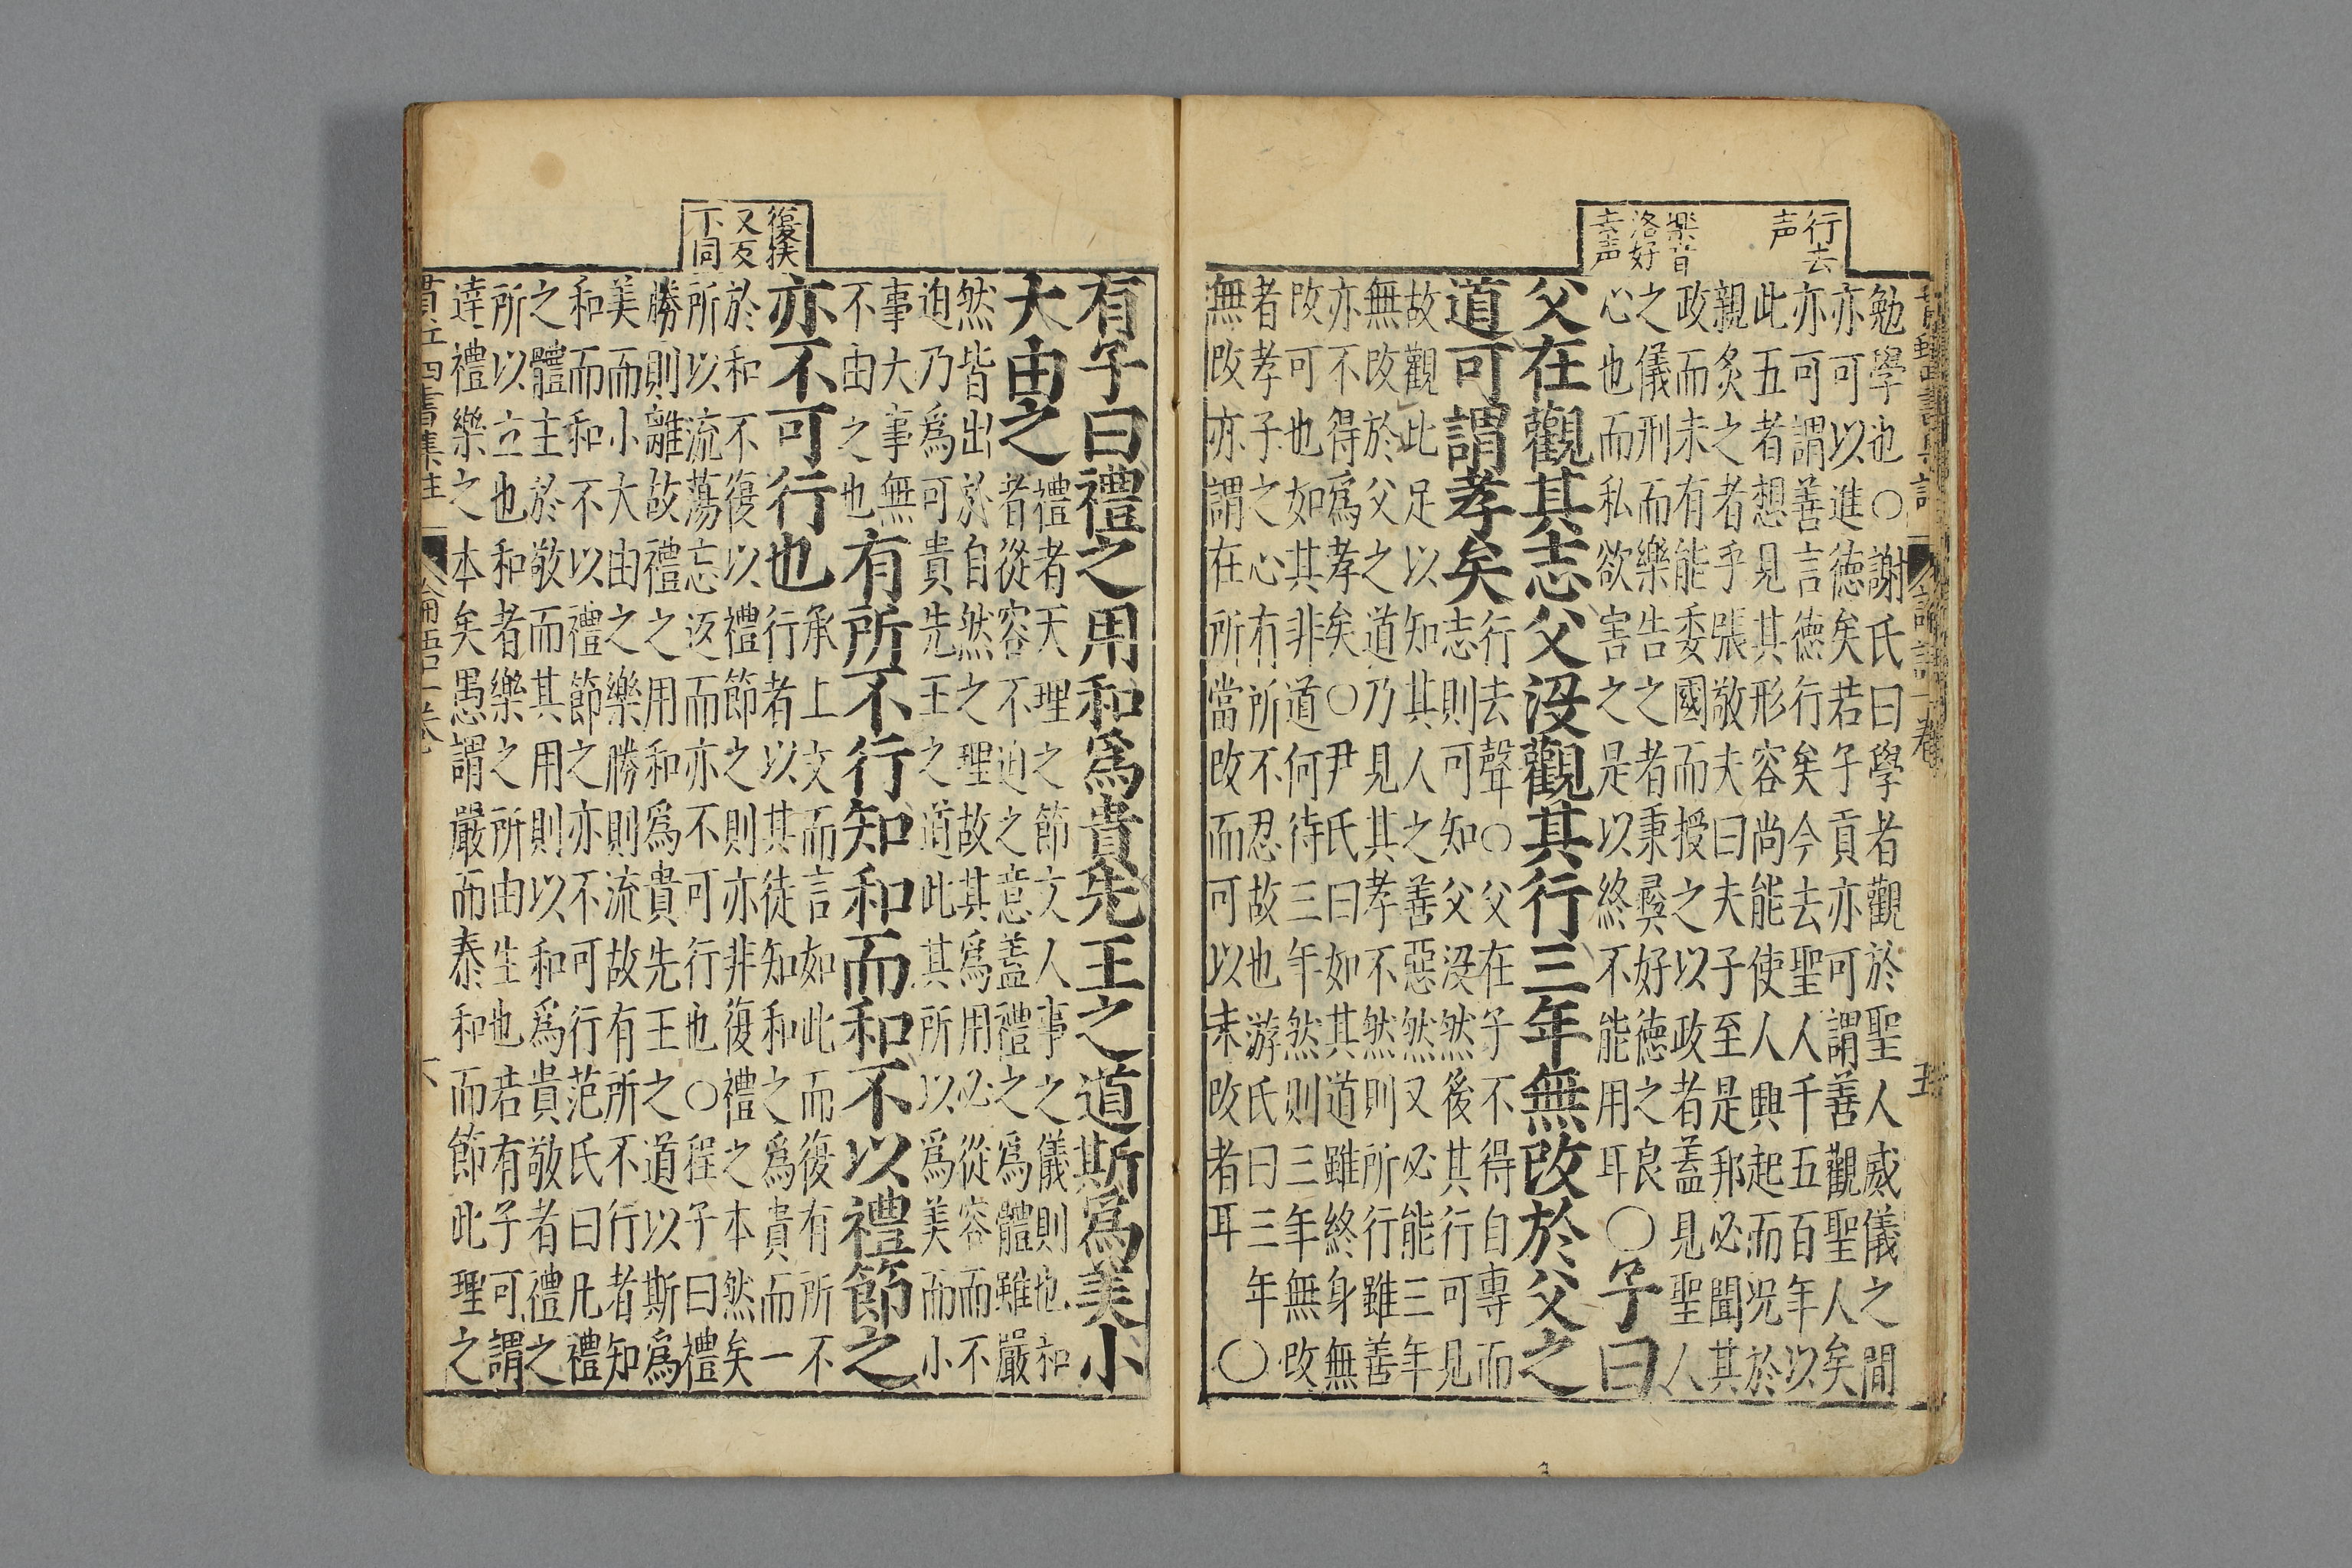 行去
声
樂音
洛好
去声
四書集註 論語一卷 五
勉學也○謝氏曰學者觀於聖人威儀之間
亦可以進德矣若子貢亦可謂善觀聖人矣
亦可謂善言德行矣今去聖人千五百年以
此五者想見其形容尚能使人興起而况於
親炙之者乎張敬夫曰夫子至是邦必聞其
政而未有能委國而授之以政者蓋見聖人
之儀刑而樂告之者秉彛好德之良
心也而私欲害之是以終不能用耳
○子曰
父在觀其志父沒觀其行三年無改於父之
道可謂孝矣
行去聲○父在子不得自專而
志則可知父沒然後其行可見
故觀此足以知其人之善惡然又必能三年
無改於父之道乃見其孝不然則所行雖善
亦不得爲孝矣○尹氏曰如其道雖終身無
改可也如其非道何待三年然則三年無改
者孝子之心有所不忍故也游氏曰三年
無改亦謂在所當改而可以未改者耳
○
復扶
又反
下同
有子曰禮之用和爲貴先王之道斯爲美小
大由之
禮者天理之節文人事之儀則也和
者從容不迫之意蓋禮之爲體雖嚴
然皆出於自然之理故其爲用必從容而不
迫乃爲可貴先王之道此其所以爲美而小
事大事無
不由之也
有所不行知和而和不以禮節之
亦不可行也
承上文而言如此而復有所不
行者以其徒知和之爲貴而一
於和不復以禮節之則亦非復禮之本然矣
所以流蕩忘返而亦不可行也○程子曰禮
勝則離故禮之用和爲貴先王之道以斯爲
美而小大由之樂勝則流故有所不行者知
和而和不以禮節之亦不可行范氏曰凡禮
之體主於敬而其用則以和爲貴敬者禮之
所以立也和者樂之所由生也若有子可謂
達禮樂之本矣愚謂嚴而泰和而節此理之
四書集註 論語一卷 六